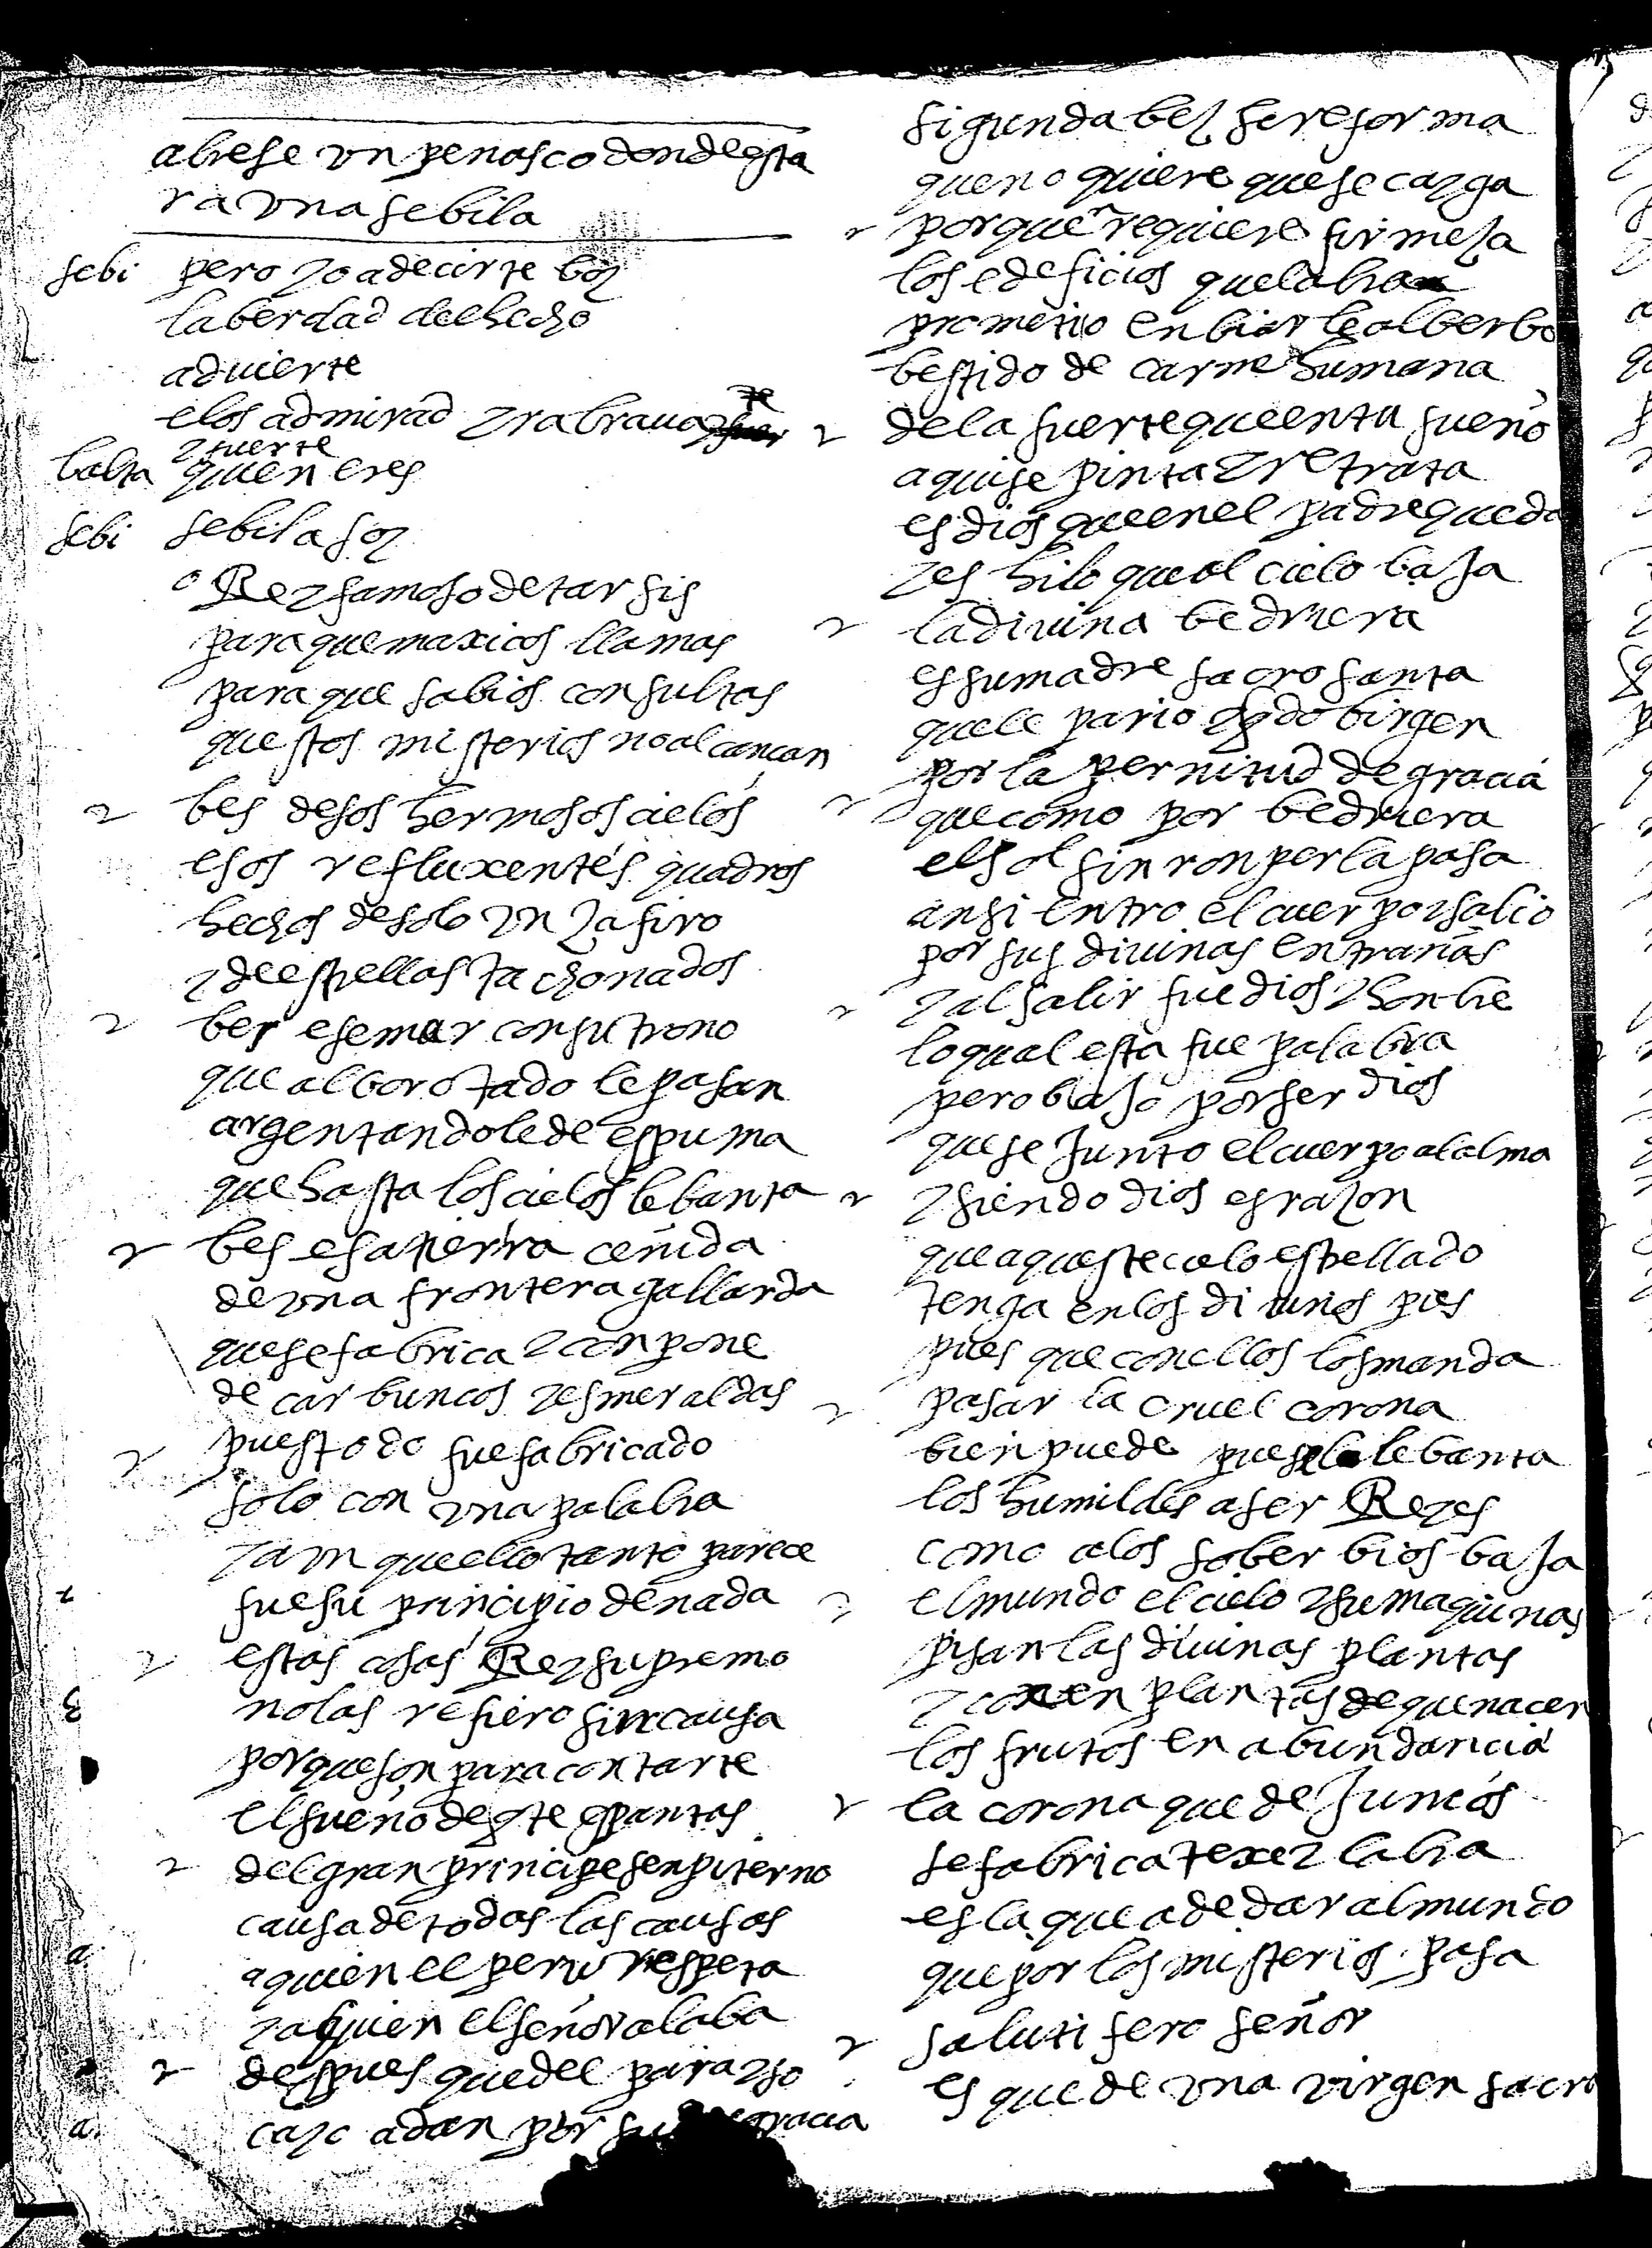 abrese vn penasco donde esta
ra vna sebila
sebi pero yo a decirte boy
la berdad del hecho
aduierte
elos admirad y ra braua
te
y fuerte
balta quien eres
sebi sebila soy
o Rey famoso de tarsis
para que maxicos llamas
para que sabios consultas
questos misterios no alcançan
bes desos hermosos cielos
esos refluxentes quadros
hechos de solo vn zafiro
y de estrellas tachonados
bes ese mar con su trono
que alborotado le pasan
argentandole de espuma
que hasta los cielos lebanta
bes esa tierra ceñida
de vna frontera gallarda
que se fabrica y conpone
de carbuncos y esmeraldas
pues todo fue fabricado
solo con vna palabra
y aun que ello tanto parece
fue su principio de nada
estas cosas Rey supremo
no las refiero sin causa
porque son para contarte
el sueño de que te espantas
del gran principe senpiterno
causa de todas las causas
a quien el respeta
y a quien el señor alaba
despues que del parayso
cayo adan por su
sigunda bez se reforma
que no quiere que se cayga
porque requiere firmeza
los edeficios que labra
prometio enbiarle al berbo
bestido de carne humana
de la suerte que en tu sueño
aqui se pinta y retrata
es dios que en el padre queda
y es hilo que al cielo baja
la diuina bedriera
es su madre sacrosanta
que le pario qdo birgen
por la pernitud de gracia
que como por bedriera
el sol sin ronperla pasa
ansi entro el cuerpo y salio
por sus diuinas entrañas
y al salir fue dios y honbre
lo qual esta fue palabra
pero bajo por ser dios
que se junto el cuerpo al alma
y siendo dios es razon
que aqueste cielo estrellado
tenga en los diuinos pies
pues que con ellos los manda
pasar la cruel corona
bien puede pues lebanta
los humildes a ser Reyes
como a los soberbios baja
el mundo el cielo y su maquinas
pisan las diuinas plantas
y en plantas de que nacen
los frutos en abundancia
la corona que de juncos
se fabrica texe y labra
es la que a de dar al mundo
que por los misterios pasa
salutifero señor
es que de vna virgen sacra